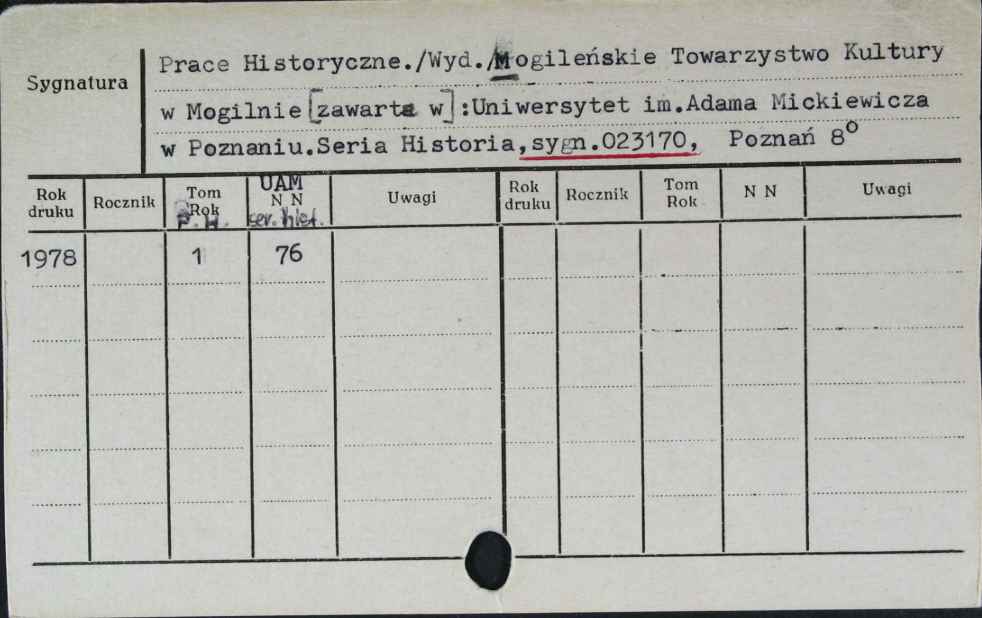 Sygnatura
Prace Historyczne./Wyd./Mogileńskie Towarzystwo Kultury
w Mogilnie [zawarta w]:Uniwersytet im.Adama Mickiewicza
w Poznaniu.Seria Historia,sygn.023170, Poznań 8°
Rok druku Rocznik Tom Rok P.H. UAM N N ser. hist. Uwagi Rok druku Rocznik Tom Rok N N Uwagi
1978 1 76